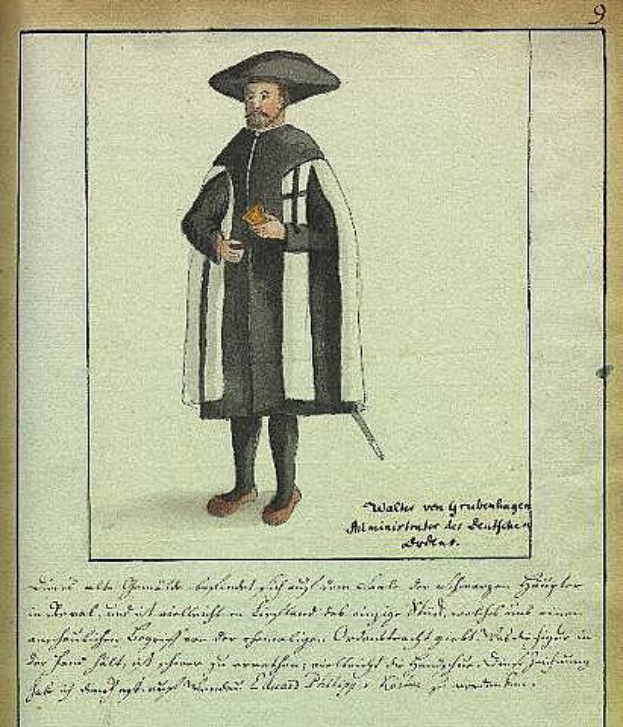 9
Walter von Grubenhagen
Administrator des Deutschen
Ordens.
Dieses alte Gemälde befindet sich auf dem Saale der schwarzen Häupter
in Reval, und ist vielleicht in Liefland das einzige Stück, welches uns einen
anschaulichen Begriff von der ehemaligen Ordenstracht giebt. Was die Figur in
der Hand hält, ist schwer zu errathen; vielleicht die Handschue. Diese Zeichnung
hab ich dem Eduard Philipp zu verdanken.